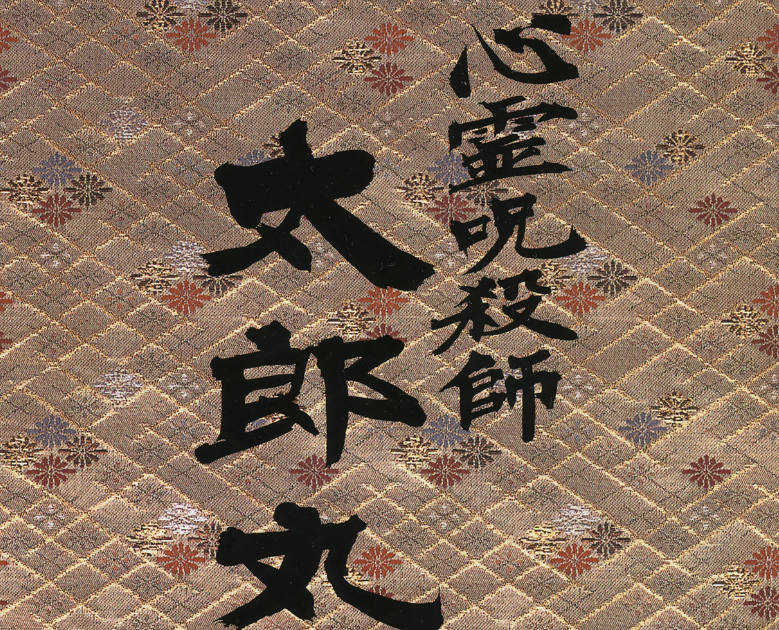 心霊呪殺師
太郎丸